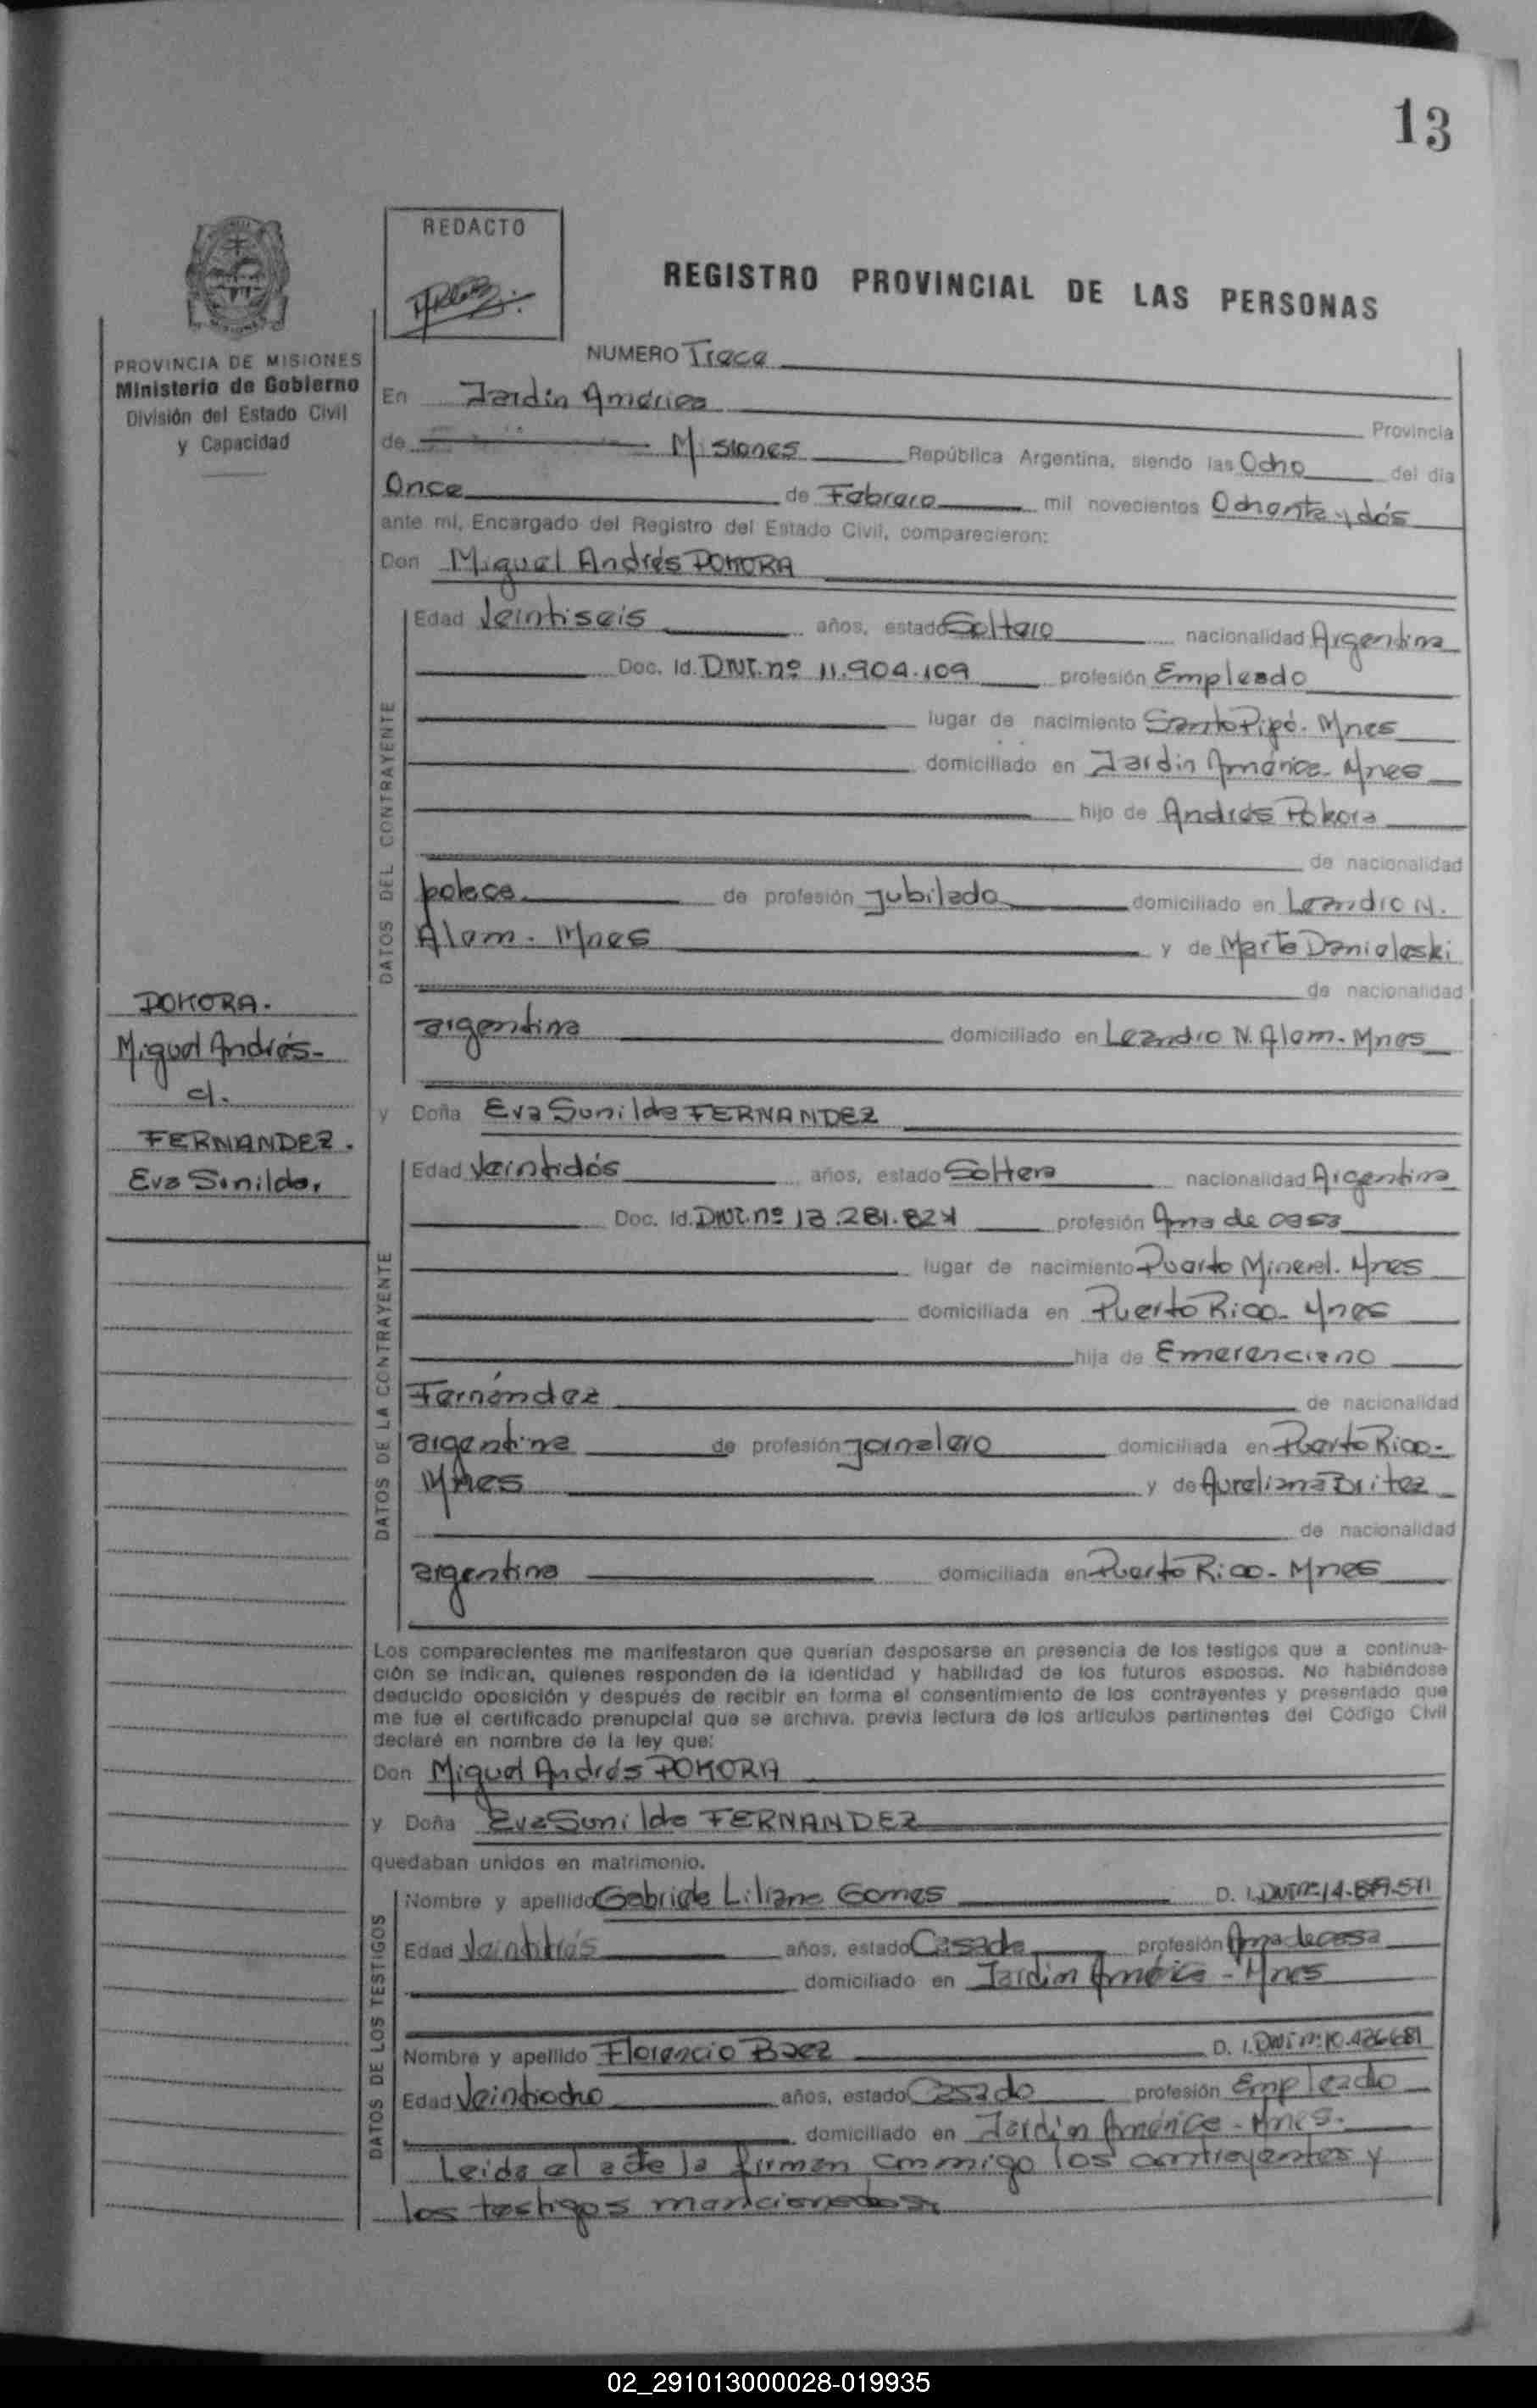 13
REDACTO
REGISTRO PROVINCIAL DE LAS PERSONAS
PROVINCIA DE MISIONES
Ministerio de Gobierno
División del Estado Civil
y Capacidad
NUMERO Trece
En Jardín América
Provincia
de Misiones República Argentina, siendo las Ocho del día
Once de Febrero mil novecientos Ochenta y dós
ante mi, Encargado del Registro del Estado Civil, comparecieron:
Don Miguel Andrés POKORA
DATOS DEL CONTRAYENTE
Edad Veintiseis años, estado Soltero nacionalidad Argentina
Doc. Id. DNI. nº 11.904.109 profesión Empleado
lugar de nacimiento Santo Pipó. Mnes
domiciliado en Jardín América - Mnes
hijo de Andrés Pokora
de nacionalidad
polaca de profesión jubilado domiciliado en Leandro N.
Alem - Mnes y de Marta Danieleski
de nacionalidad
argentina domiciliado en Leandro N. Alem - Mnes
POKORA.
Miguel Andrés-
c/.
FERNANDEZ.
Eva Sunilda,
y Doña Eva Sunilda FERNANDEZ
DATOS DE LA CONTRAYENTE
Edad Veintidós años, estado Soltera nacionalidad Argentina
Doc. Id. DNI. nº 13.281.824 profesión Ama de casa
lugar de nacimiento Puerto Mineral. Mnes
domiciliada en Puerto Rico - Mnes
hija de Emerenciano
Fernández de nacionalidad
argentina de profesión jornalero domiciliada en Puerto Rico -
Mnes y de Aureliana Britez
de nacionalidad
argentina domiciliada en Puerto Rico - Mnes
Los comparecientes me manifestaron que querían desposarse en presencia de los testigos que a continua-
ción se indican, quienes responden de la identidad y habilidad de los futuros esposos. No habiéndose
deducido oposición y después de recibir en forma el consentimiento de los contrayentes y presentado que
me fue el certificado prenupcial que se archiva, previa lectura de los artículos pertinentes del Código Civil
declaré en nombre de la ley que:
Don Miguel Andrés POKORA
y Doña Eva Sunilda FERNANDEZ
quedaban unidos en matrimonio.
DATOS DE LOS TESTIGOS
Nombre y apellido Gabriela Liliana Gomes D. I. DNI nº 14.
Edad Veintitrés años, estado Casada profesión Ama de casa
domiciliado en Jardín América - Mnes
Nombre y apellido Florencio Baez D. I. DNI nº 10.426681
Edad Veintiocho años, estado Casado profesión Empleado
domiciliado en Jardín América - Mnes.
Leida el acta la firman conmigo los contrayentes y
los testigos mencionados.
02_291013000028-019935